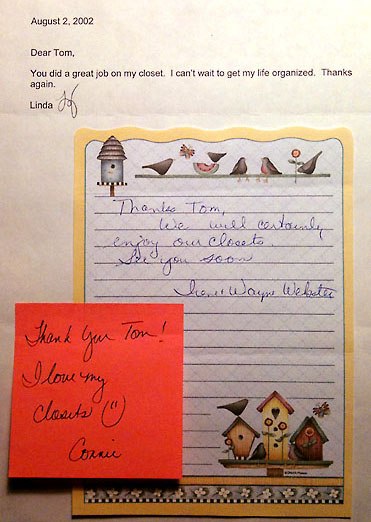 August 2, 2002
Dear Tom,
You did a great job on my closet.  I can't wait to get my life organized.  Thanks
again.
Linda
Thanks Tom,
We will certainly
enjoy our closets.
See you soon
Wayne Webster
Thank You Tom!
I love my
closets (")
Connie